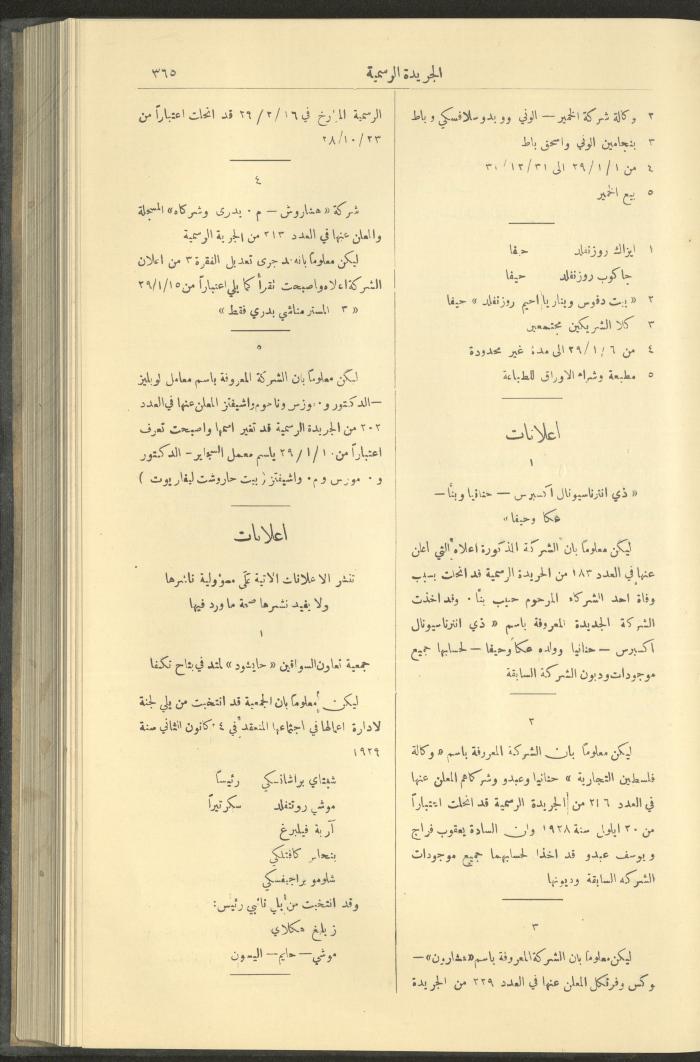 الجريدة الرسمية
٣٦٥
٢ وكالة شركة الخمير — الوني وو بدوسلافسكي وباط
٣ بنجامين الوني واسحق باط
٤ من ٢٩/١/١ الى ٣٠/١٢/٣١
٥ بيع الخمير
١ ايزاك روزنفلد حيفا
جاكوب روزنفلد حيفا
٢ « بيت دفوس وبنار يااحيم روزنفلد » حيفا
٣ كلا الشريكين مجتمعين
٤ من ٢٩/١/٦ الى مدة غير محدودة
٥ مطبعة وشراء الاوراق للطباعة
اعلانات
١
« ذي انترناسيونال اكسبرس — حنانيا وبنا —
عكا وحيفا »
ليكن معلوماً بان الشركة المذكورة اعلاه التي اعلن
عنها في العدد ١٨٣ من الجريدة الرسمية قد انحلت بسبب
وفاة احد الشركاء المرحوم حبيب بنا . وقد اخذت
الشركة الجديدة المعروفة باسم « ذي انترناسيونال
اكسبرس — حنانيا وولده عكا وحيفا — لحسابها جميع
موجودات وديون الشركة السابقة
٢
ليكن معلوماً بان الشركة المعروفة باسم « وكالة
فلسطين التجارية » حنانيا وعبدو وشركاهم المعلن عنها
في العدد ٢١٦ من الجريدة الرسمية قد انحلت اعتباراً
من ٣٠ ايلول سنة ١٩٢٨ وان السادة يعقوب فراج
ويوسف عبدو قد اخذا لحسابهما جميع موجودات
الشركه السابقة وديونها
٣
ليكن معلوماً بان الشركة المعروفة باسم «هشارون» —
وكس وفرنكل المعلن عنها في العدد ٢٢٩ من الجريدة
الرسمية المؤرخ في ٢٩/٢/١٦ قد انحلت اعتباراً من
٢٨/١٠/٢٣
٤
شركة « هتاروش — م . بدري وشركاه » المسجلة
والمعلن عنها في العدد ٢١٣ من الجريدة الرسمية
ليكن معلوماً بانه قد جرى تعديل الفقرة ٣ من اعلان
الشركة اعلاه واصبحت تقرأ كما يلي اعتباراً من ٢٩/١/١٥
« ٣ المستر مناشي بدري فقط »
٥
ليكن معلوماً بان الشركة المعروفة باسم معامل لوبليز
— الدكتور و . موزس وناحوم واشيفتز المعلن عنها في العدد
٢٠٢ من الجريدة الرسمية قد تغير اسمها واصبحت تعرف
اعتباراً من ٢٩/١/١٠ باسم معمل السيواير — الدكتور
و . موزس وم . واشيفتز ( بيت حاروشت لبغاريوت )
اعلانات
تنشر الاعلانات الاتية على مسؤولية ناشرها
ولا يفيد نشرها صحة ما ورد فيها
١
جمعية تعاون السواقين « حايشود » لمتد في بتاح تكفا
ليكن معلوماً بان الجمعية قد انتخبت من يلي لجنة
لادارة اعمالها في اجتماعها المنعقد في ٤ كانون الثاني سنة
١٩٢٩
شبتاي براشاذسكي رئيساً
موشي روتنفلد سكرتيراً
آرية فيلبرغ
كافتلكي
شلومو براجبفسكي
وقد انتخبت من يلي نائبي رئيس :
زيلغ مكلاي
موشي — حايم — اليسون